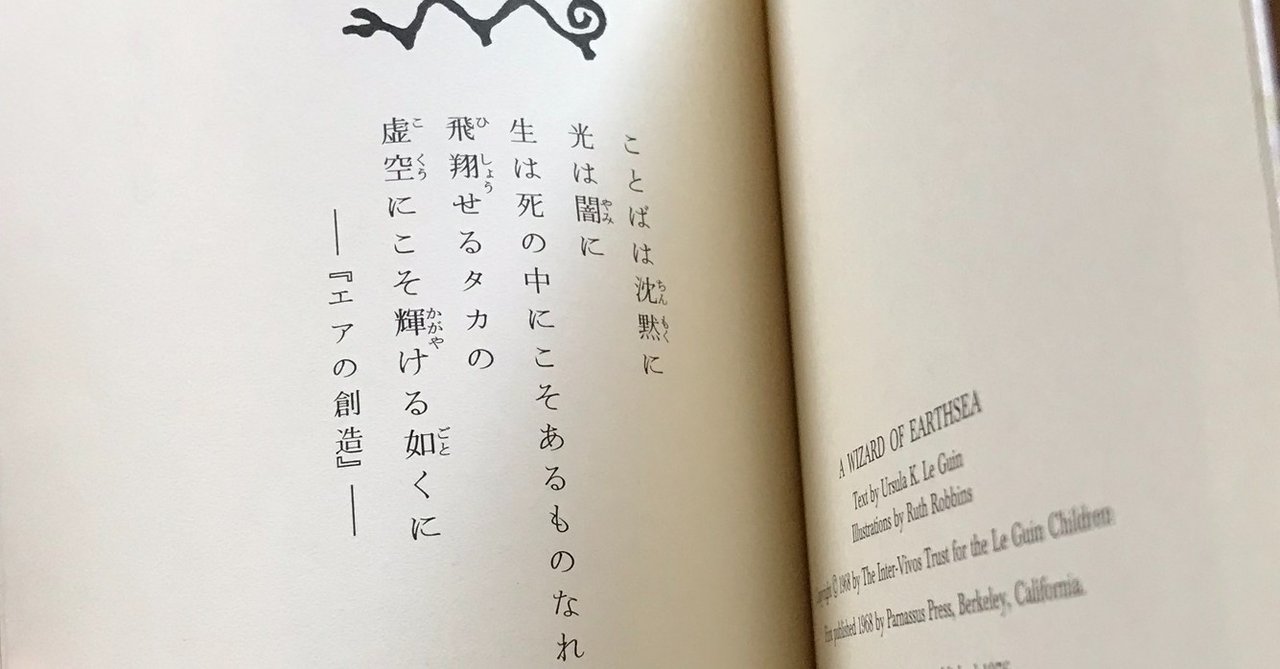 ことばは沈黙に
光は闇に
生は死の中にこそあるものなれ
飛翔せるタカの
虚空にこそ輝ける如くに
――『エアの創造』――
A WIZARD OF EARTHSEA
Text by Ursula K. Le Guin
Illustrations by Ruth Robbins
Copyright © 1968 by The Inter-Vivos Trust for the Le Guin Children
First published 1968 by Parnassus Press, Berkeley, California.